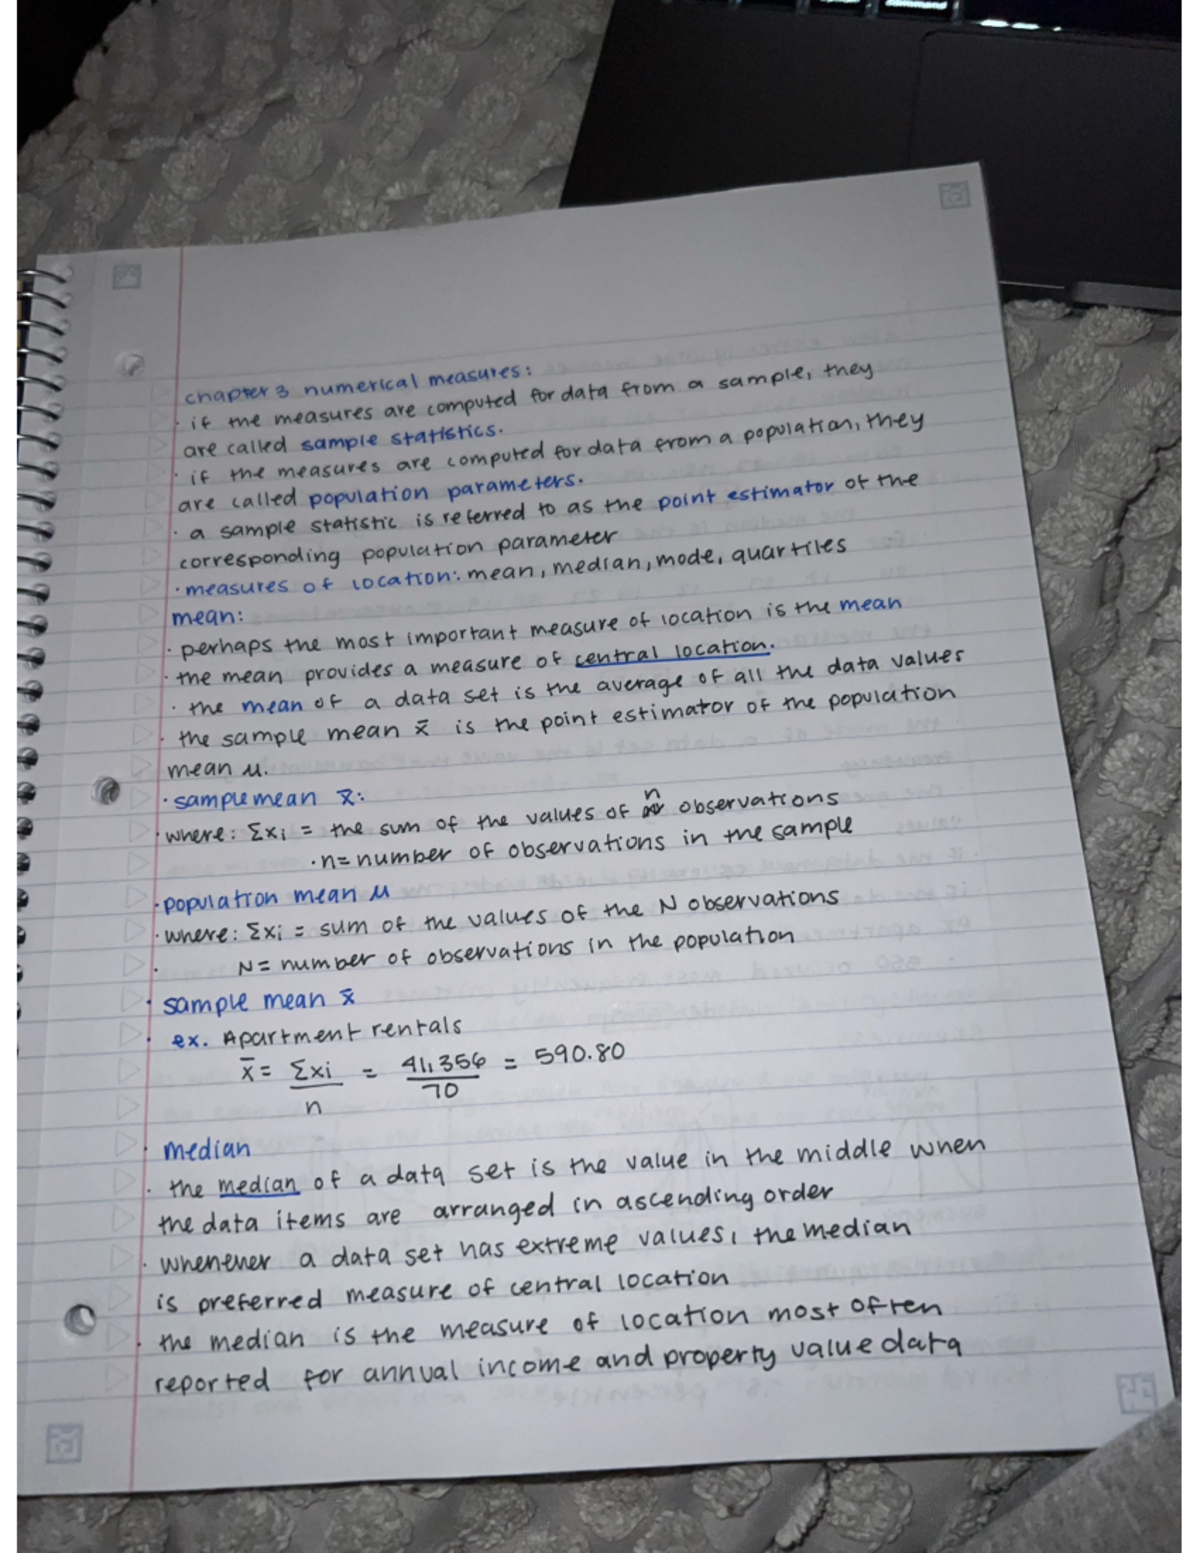 command
chapter 3 numerical measures:
· if the measures are computed for data from a sample, they
are called sample statistics.
· if the measures are computed for data from a population, they
are called population parameters.
· a sample statistic is referred to as the point estimator of the
corresponding population parameter
· measures of location: mean, median, mode, quartiles
mean:
· perhaps the most important measure of location is the mean
· the mean provides a measure of central location.
· the mean of a data set is the average of all the data values
· the sample mean x̄ is the point estimator of the population
mean μ.
· sample mean x̄:
· where: Σxi = the sum of the values of n observations
· n = number of observations in the sample
· population mean μ
· where: Σxi = sum of the values of the N observations
· N = number of observations in the population
· sample mean x̄
· ex. Apartment rentals
x̄ = Σxi/n = 41,356/70 = 590.80
· median
· the median of a data set is the value in the middle when
the data items are arranged in ascending order
· whenever a data set has extreme values, the median
is preferred measure of central location
· the median is the measure of location most often
reported for annual income and property value data